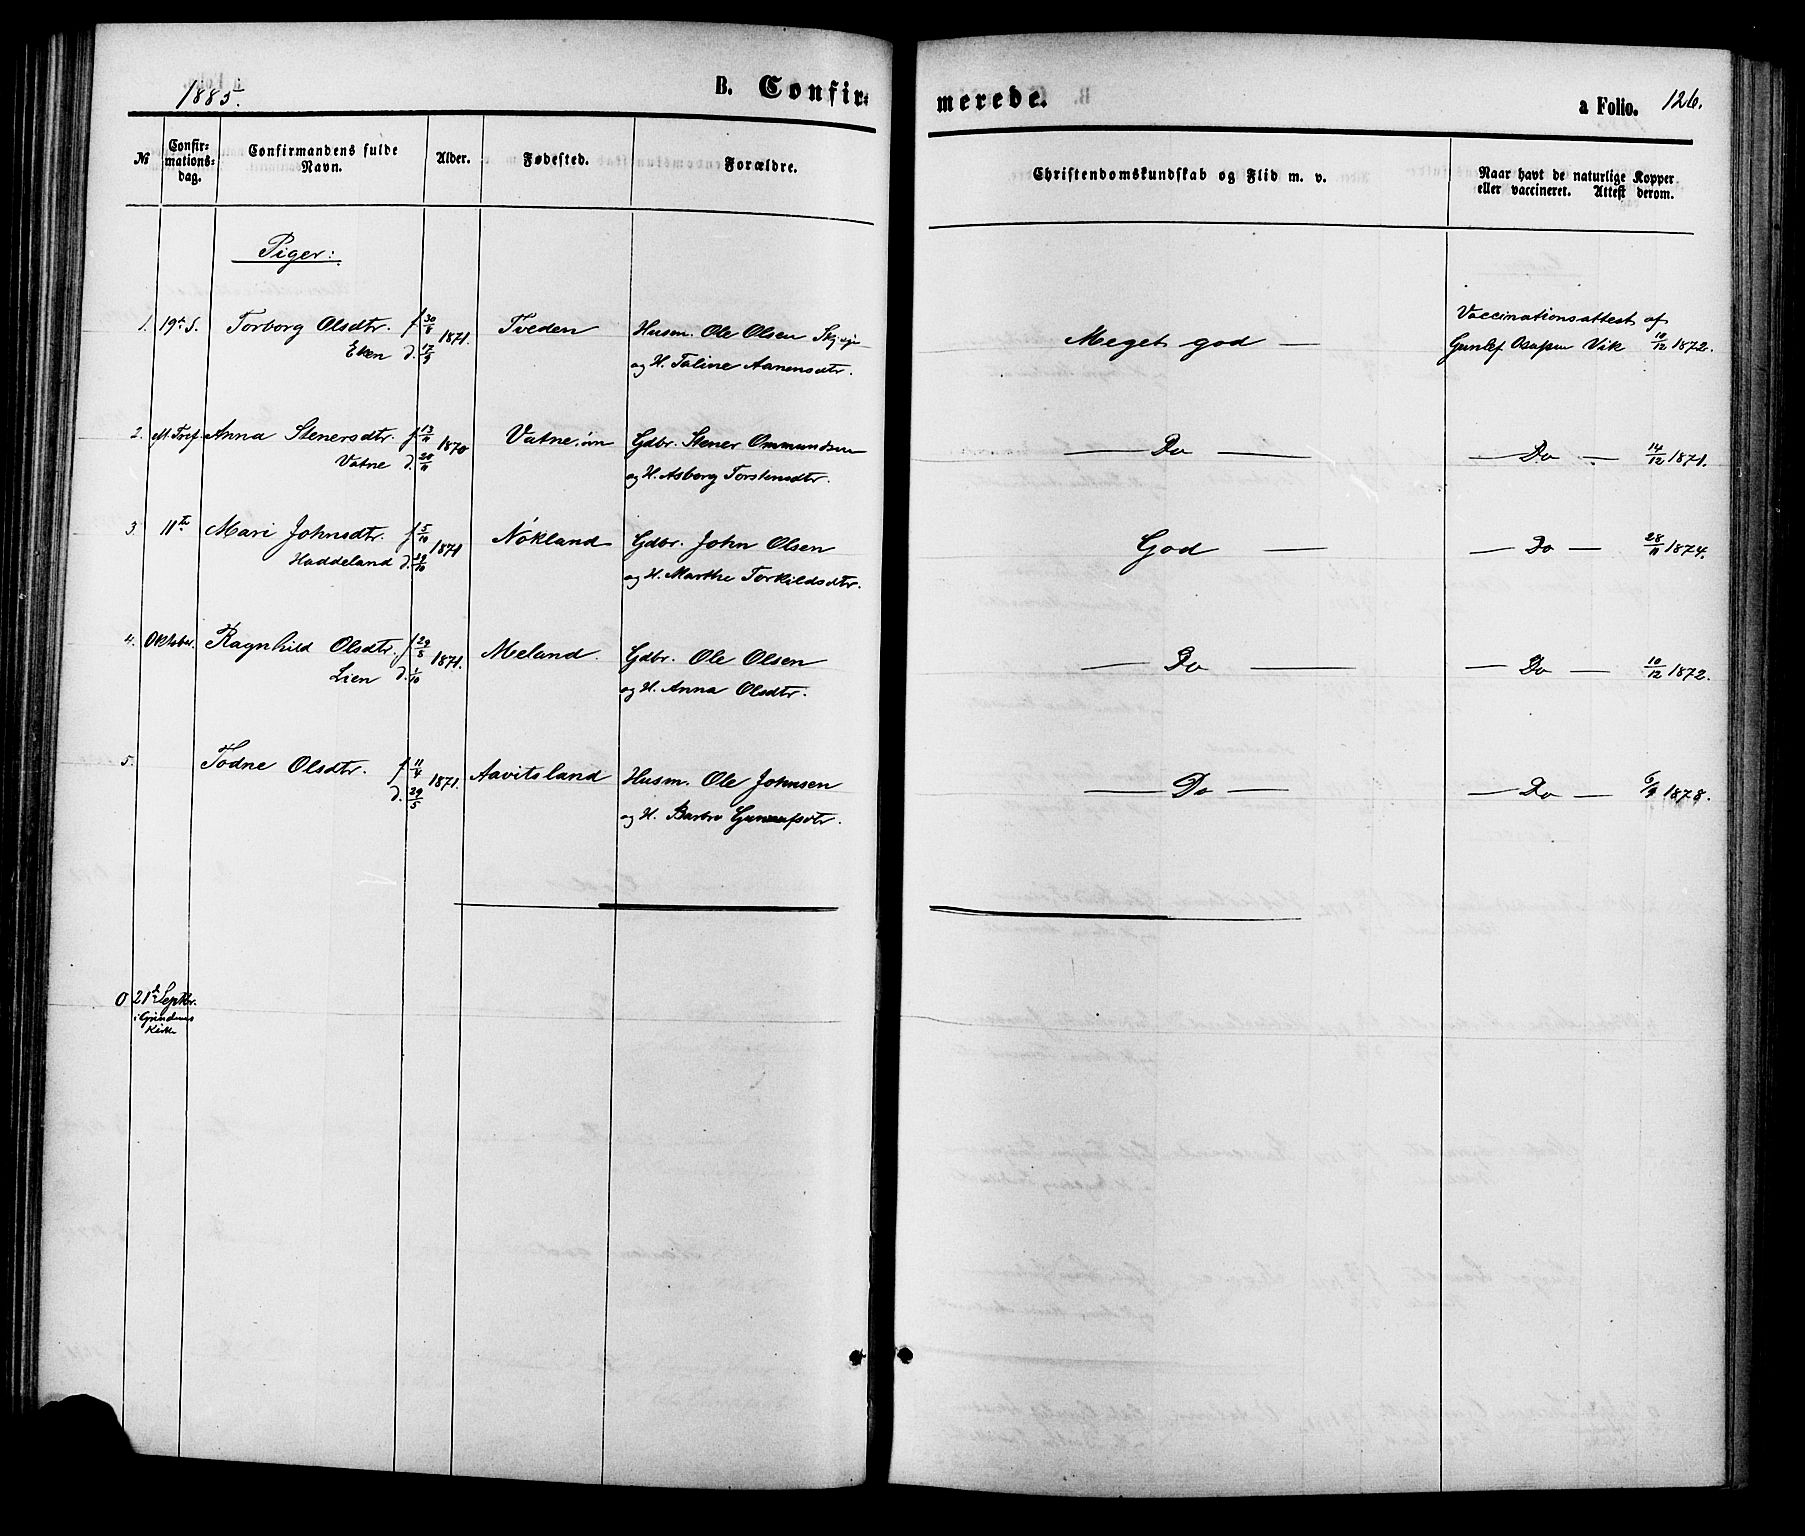 1885.
B. Confir-
merede.
a Folio. 126.
№
Confir-
mations-
dag.
Confirmandens fulde
Navn.
Alder.
Fødested.
Forældre.
Christendomskundskab og Flid m. v.
Naar havt de naturlige Kopper
eller vaccineret. Attest derom.
Piger:
1. 19de S. Torborg Olsdtr. f 30/8 1871. Tveden Husm. Ole Olsen
Eken d. 17/9 og H. Taline Aanensdtr.
Meget god — Vaccinationsattest af
Gunlef Vik 10/12 1872.
2. M. Tref. Anna Stenersdtr. f 13/11 1870 Vatne Gdbr. Stener Ommundsen
Vatne d. 20/11 og H. Asborg Torstensdtr.
— Do — — Do — 14/12 1871.
3. 11te Mari Johnsdtr. f 5/10 1871 Nøkland Gdbr. John Olsen
Haddeland d. 29/10 og H. Marthe Torkildsdtr.
God — — Do — 28/11 1874.
4. Oktober. Ragnhild Olsdtr. f 29/8 1871. Meland. Gdbr. Ole Olsen
Lien d. 1/10 og H. Anna Olsdtr.
— Do — — Do — 10/12 1872.
5. Todne Olsdtr. f 11/4 1871. Aavitsland Husm. Ole Johnsen
d. 29/5 og H. Barbro
— Do — — Do — 6/9 1878.
0 21de Septbr.
i
Kirke